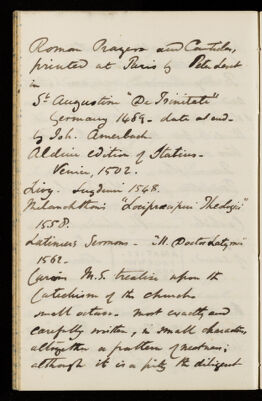 Roman Prayers and Canticles,
printed at Paris by Peter
in
St Augustin "De Trinitate"
Germany 1489 - date at end -
by Joh. Amerbach.
Aldine edition of Statius -
Venice, 1502.
Livy. Lugduni 1548.
Melanchthon's "Loci praecipui Theologici"
1558.
Latimer's Sermons - "M. Doctor Latymer"
1562.
Curious M.S. treatise upon the
Catechism of the church
small octavo. most exactly and
carefully written, in small characters,
altogether a pattern of neatness;
although it is a pity the diligent